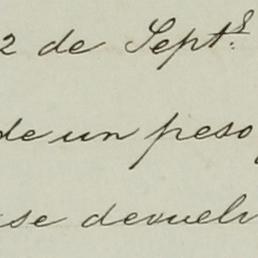 2 de Septe.
de un peso
se devuelv